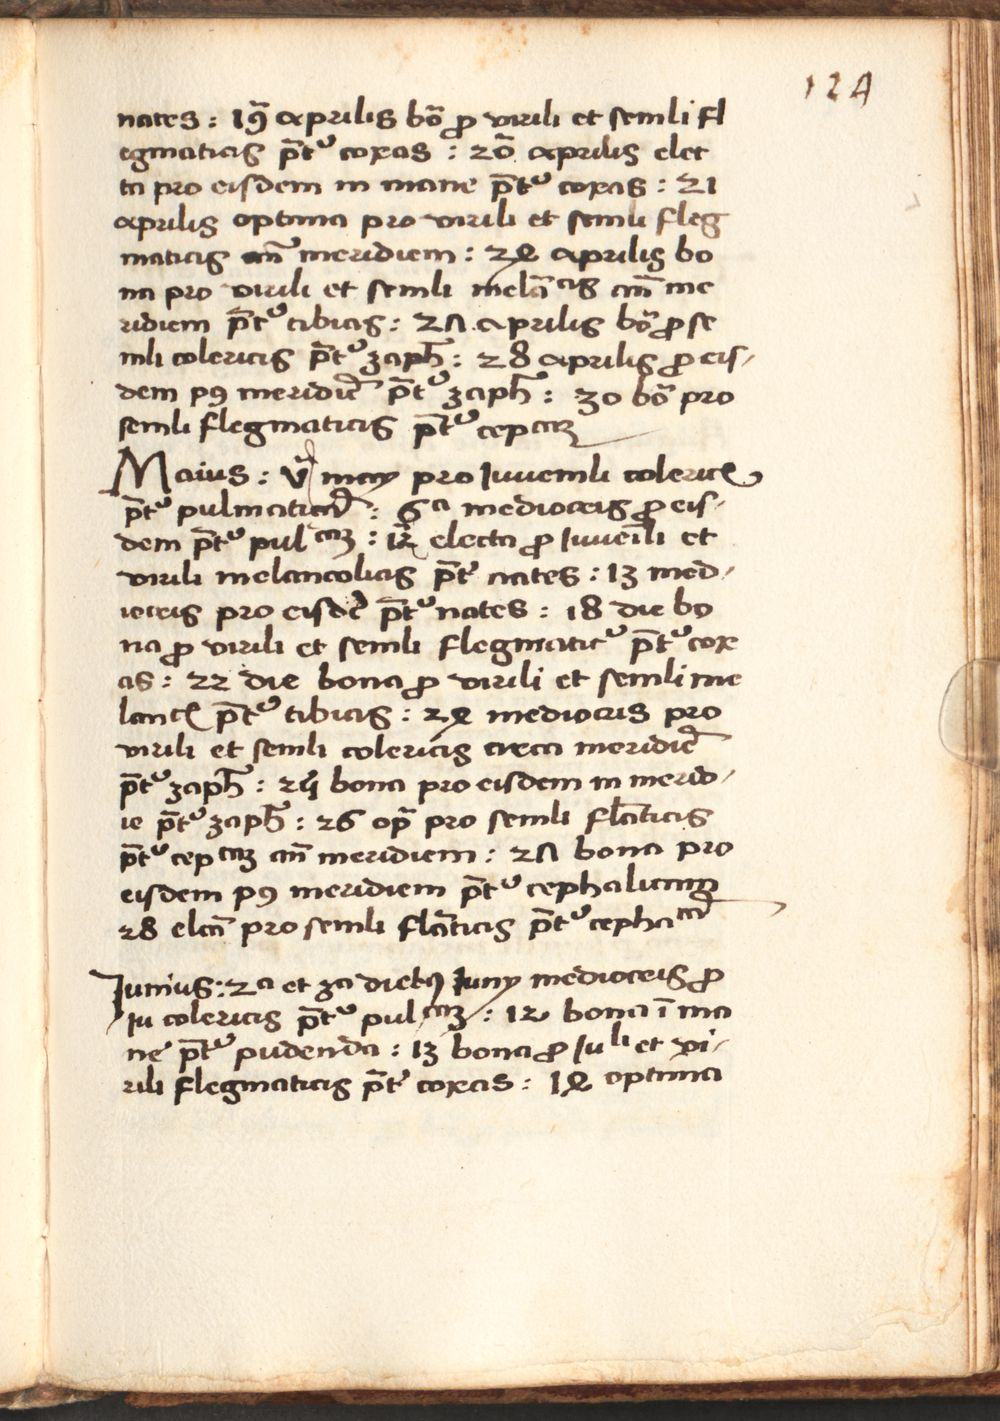 124
nates : 19ª aprilis bo᷑ ꝓ virili et senili fl
egmaticis p̄tꝰ coxas : 20ª aprilis elec
ta pro eisdem in mane p̄tꝰ coxas : 21
aprilis optima pro virili et senili fleg
maticis an̄ meridiem : 24 aprilis bo
na pro virili et senili melācis an̄ me
ridiem p̄tꝰ tibias : 27 aprilis bo᷑ ꝓ se
nili colericis p̄tꝰ zaph̄ : 28 aprilis ꝓ eis/
dem pꝯ meridiē p̄tꝰ zaph̄ : 30 bo᷑ pro
senili flegmaticis p̄tꝰ cepcaꝫ
Maius : vª may pro Iuvenili coleric
p̄tꝰ pulmaticā : 6ª mediocris ꝓ eis/
dem p̄tꝰ pulcaꝫ : 12 electa ꝓ Iuvēili et
virili melancolicis p̄tꝰ nates : 13 med/
iocris pro eisdē p̄tꝰ nates : 18 die bo
na ꝓ virili et senili flegmaticꝰ p̄tꝰ cox
as : 22 die bona ꝓ virili et senili me
lanc p̄tꝰ tibias : 24 mediocris pro
virili et senili colericis circa meridiē
p̄tꝰ zaph̄ : 25 bona pro eisdem in merid/
ie p̄tꝰ zaph̄ : 26 op̄ pro senili fl̄aticis
p̄tꝰ cepcaꝫ an̄ meridiem : 27 bona pro
eisdem pꝯ meridiem p̄tꝰ cephalicam
28 elcā pro senili flāticis p̄tꝰ cephacā
Iunius : 2ª et 3ª diebꝰ Iuny mediocris ꝓ
Iu colericis p̄tꝰ pulcaꝫ : 12 bona ī ma
ne p̄tꝰ pudenda : 13 bona ꝓ Iuli et vi/
rili flegmaticis p̄tꝰ coxas : 14 optima